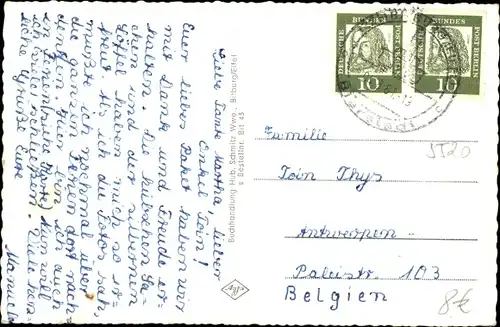 Liebe Tante Martha, lieber
Onkel Toin!
Euer liebes Paket haben wir
mit Dank und Freude er-
halten. Die hübschen Sa-
chen und der silbernen
Löffel haben mich so er-
freut. Als ich die Fotos sah,
mußte ich nochmal über
die ganzen Ferien dort nach-
denken. Hier bin ich auch
in
ich viel schließen. Viele herz-
liche Grüße Eure
Manuela
Buchhandlung Hub. Schmitz Wwe., Bitburg/Eifel
s Bestellnr. Bit 45
DEUTSCHE BUNDESPOST BERLIN
10
DEUTSCHE BUNDESPOST BERLIN
10
Familie
Toin Thys
Antwerpen
Paleistr. 103
Belgien
ST20
8€